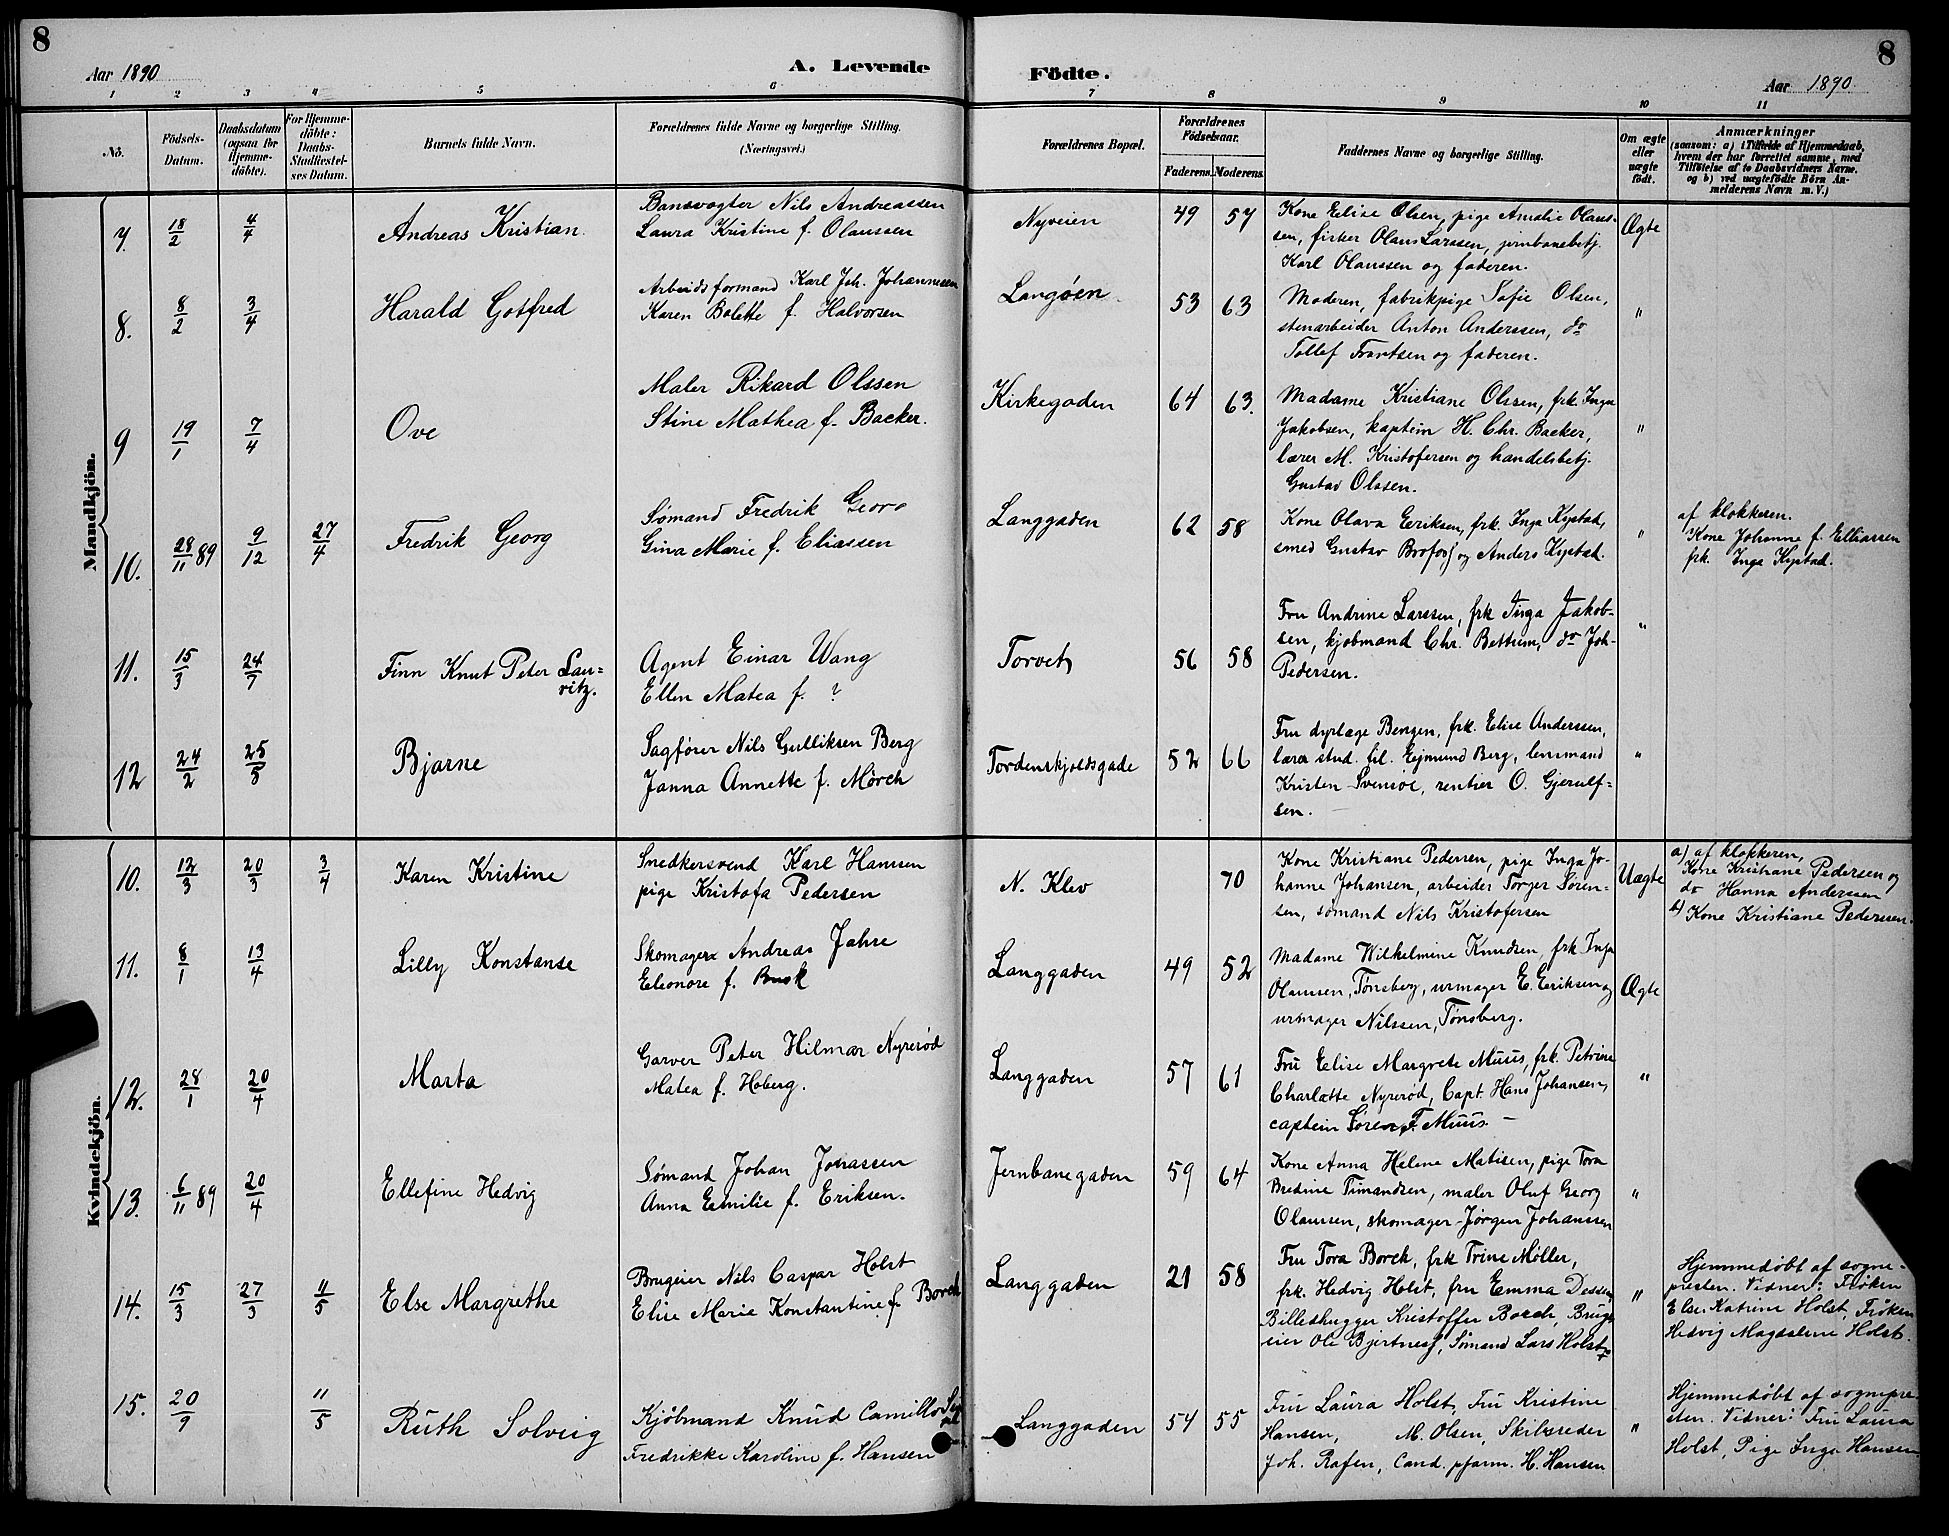 8
Aar 1890
A. Levende
Födte.
Aar 1890
8
1 2 3 4 5 6 7 8 9 10 11
No.
Födsels-
Datum.
Daabsdatum
(ogsaa for
Hjemme-
döbte).
For Hjemme-
döbte:
Daabs-
Stadfæstel-
ses Datum.
Barnets fulde Navn.
Forældrenes fulde Navne og borgerlige Stilling.
(Næringsvei.)
Forældrenes Bopæl.
Forældrenes
Födselsaar.
Faderens.
Moderens.
Faddernes Navne og borgerlige Stilling.
Om ægte
eller
uægte
født.
Anmærkninger
(saasom: a) i Tilfælde af Hjemmedaab,
hvem der har forrettet samme, med
Tilføielse af to Daabsvidners Navne,
og b) ved uægtefödte Börn An-
melderens Navn m. V.)
Mandkjön.
7. 18/2 4/4
Andreas Kristian.
Banevogter Nils Andreassen
Laura Kristine f. Olaussen
Nyveien
49 57
Kone Elise Olsen, pige Amalie Olaus-
sen, fisker Olaus Larssen, jernbanebetj.
Karl Olaussen og faderen.
Ægte
8. 8/2 3/4
Harald Gotfred
Arbeidsformand Karl Joh. Johannesen
Karen Bolette f. Halvorsen
Langøen
53 63
Moderen, fabrikpige Sofie Olsen,
stenarbeider Anton Anderssen, do
Tollef Frantsen og faderen.
"
9 19/1 7/4
Ove
Maler Rikard Olssen
Stine Mathea f. Backer.
Kirkegaden
64 63.
Madame Kristiane Olssen, frk. Inga
Jakobsen, kaptein H. Chr. Backer,
lærer M. Kristofersen og handelsbetj.
Gustav Olssen.
"
10. 28/11 89 9/12 27/4
Fredrik Georg
Sømand Fredrik Georg
Gina Marie f. Eliassen
Langgaden
62 58
Kone Olava Eriksen, frk. Inga Kystad,
smed Gustav Brofos og Anders Kystad.
"
af klokkeren.
Kone Johanne f. Elliassen
frk. Inga Kystad.
11. 15/3 24/7
Finn Knut Peter Lau-
ritz.
Agent Einar Wang
Ellen Matea f. ?
Torvet
56 58
Fru Andrine Larssen, frk Inga Jakob-
sen, kjøbmand Chr. Bettum, do Joh-
Pedersen.
"
12 24/2 25/5
Bjarne
Sagfører Nils Gulliksen Berg
Janna Annette f. Mørch
Tordenskjoldsgade
52 66
Fru dyrlæge Bengen, frk. Elise Anderssen,
lærer stud. fil. Berg, lensmand
Kristen Svensøe, rentier O. Gjerulf-
sen.
"
Kvindekjön.
10. 12/3 20/3 3/4
Karen Kristine
Snedkersvend Karl Hansen
pige Kristofa Pedersen
N. Klev
70
Kone Kristiane Pedersen, pige Inga Jo-
hanne Johansen, arbeider Torger Søren-
sen, sømand Nils Kristofersen
Uægte
a) af klokkeren,
Kone Kristiane Pedersen og
do Hanna Anderssen
b) Kone Kristiane Pederssen.
11. 8/1 13/4
Lilly Konstanse
Skomager Andreas Jahre
Eleonore f. Busk
Langgaden
49 52
Madame Wilhelmine Knudsen, frk. Inga
Olaussen, Tønsberg, urmager E. Eriksen og
urmager Nilssen, Tønsberg.
Ægte
12. 28/1 20/4
Marta
Garver Peter Hilmar Nyrerød
Matea f. Hoberg.
Langgaden
57 61
Fru Elise Margrete Muus, frk. Petrine
Charlotte Nyrerød, Capt. Hans Johansen,
captein Søren F. Muus. –
"
13. 6/11 89 20/4
Ellefine Hedvig
Sømand Johan Johassen
Anna Emilie f. Eriksen.
Jernbanegaden
59 64
Kone Anna Helene Matisen, pige Tora
Bredine Timandsen, maler Oluf Georg
Olaussen, skomager Jørgen Johanssen
"
14. 15/3 27/3 11/5
Else Margrethe
Brugeier Nils Caspar Holst
Elise Marie Konstantine f. Borch
Langgaden
21 58
Fru Tora Borch, frk Trine Møller,
frk. Hedvig Holst, fru Emma Dessen
Billedhugger Kristoffer Borch, Brugs
eier Ole Bjertnes, Sømand Lars Holst
"
Hjemmedøbt af sogne-
presten. Vidner: Frøken
Else Katrine Holst, Frøken
Hedvig Magdalene Holst.
15. 20/9 11/5
Ruth Solveig
Kjøbmand Knud Camillo
Fredrikke Karoline f. Hansen
Langgaden
54 55
Fru Laura Holst, Fru Kristine
Hansen, M. Olsen, Skibsreder
Joh. Rafen, Cand. pharm. H. Hansen
"
Hjemmedøbt af sognepre
sten. Vidner: Fru Laura
Holst, Pige Inga Hansen